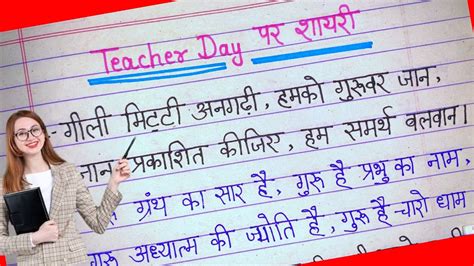 Teacher Day पर शायरी
-गीली मिट्टी अनगढ़ी, हमको गुरुवर जान,
ज्ञान प्रकाशित कीजिए, हम समर्थ बलवान।
ग्रंथ का सार है, गुरु है प्रभु का नाम,
गुरु अध्यात्म की ज्योति है, गुरु है चारो धाम